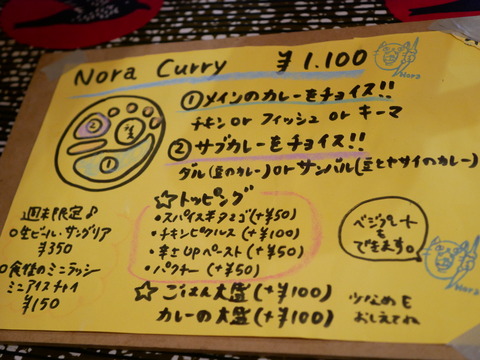 Nora Curry ¥1.100
Nora
①メインのカレーをチョイス!!
チキン or フィッシュ or キーマ
②サブカレーをチョイス!!
ダル(豆のカレー)orサンバル(豆とヤサイのカレー)
②
①
☆トッピング
・スパイス半タマゴ(+¥50)
・チキンピクルス(+¥100)
・辛さUPペースト(+¥50)
・パクチー(+¥50)
☆ごはん大盛(+¥100)
カレーの大盛(+¥100)
週末限定♪
○生ビール・サングリア
¥350
○食後のミニラッシー
ミニアイスチャイ
¥150
ベジプレート
も
できます。
Nora
少なめも
おしえてね